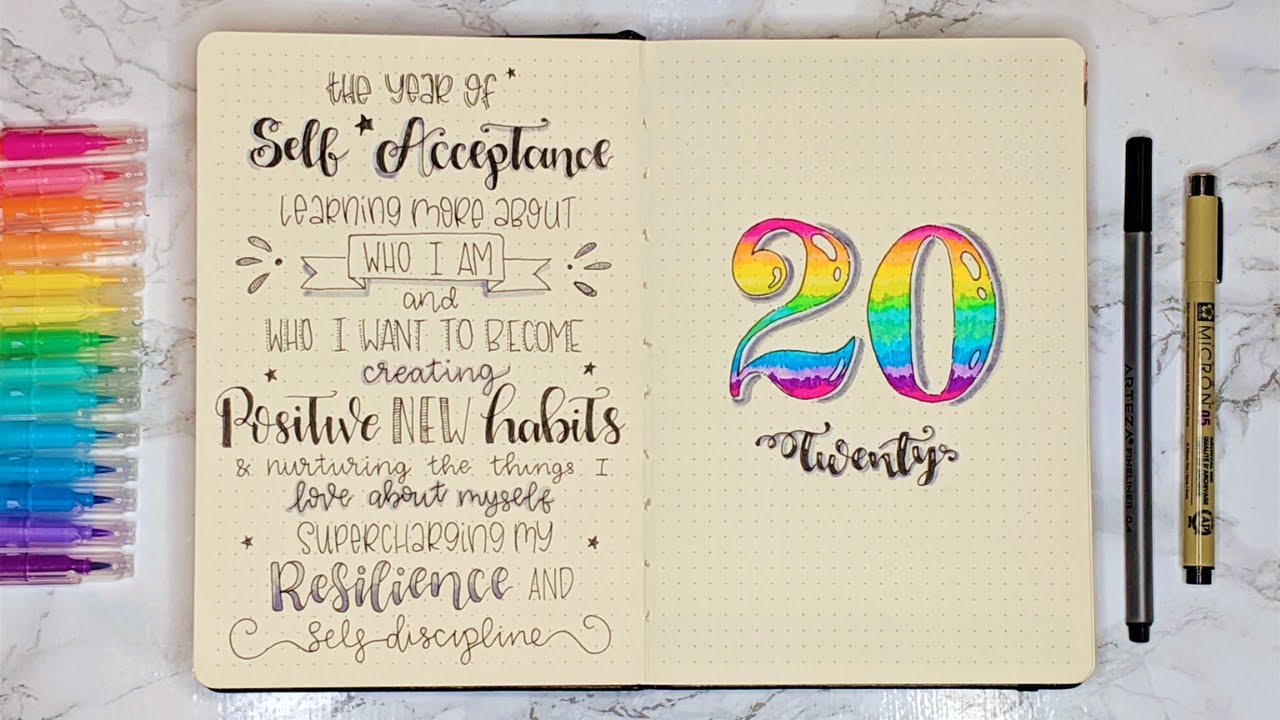 the year of
Self Acceptance
learning more about
WHO I AM
and
WHO I WANT TO BECOME
creating
Positive NEW habits
& nurturing the things I
love about myself
SUPERCHARGING MY
Resilience AND
Self-discipline
20
twenty
ARTEZA FINELINER 0.4
MICRON 05